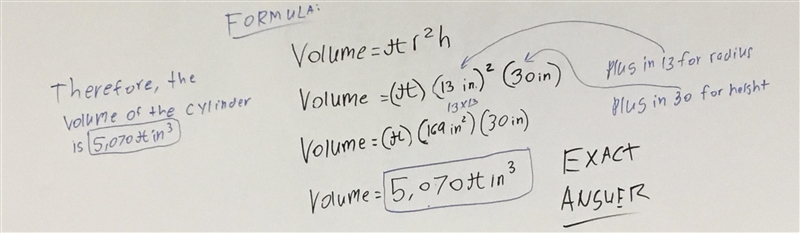 FORMULA:
Volume = πr²h
Volume = (π) (13 in.)² (30 in)
13x13
Plug in 13 for radius
Plug in 30 for height
Volume = (π) (169 in²) (30 in)
Volume = 5,070π in³
EXACT
ANSWER
Therefore, the
volume of the cylinder
is 5,070π in³